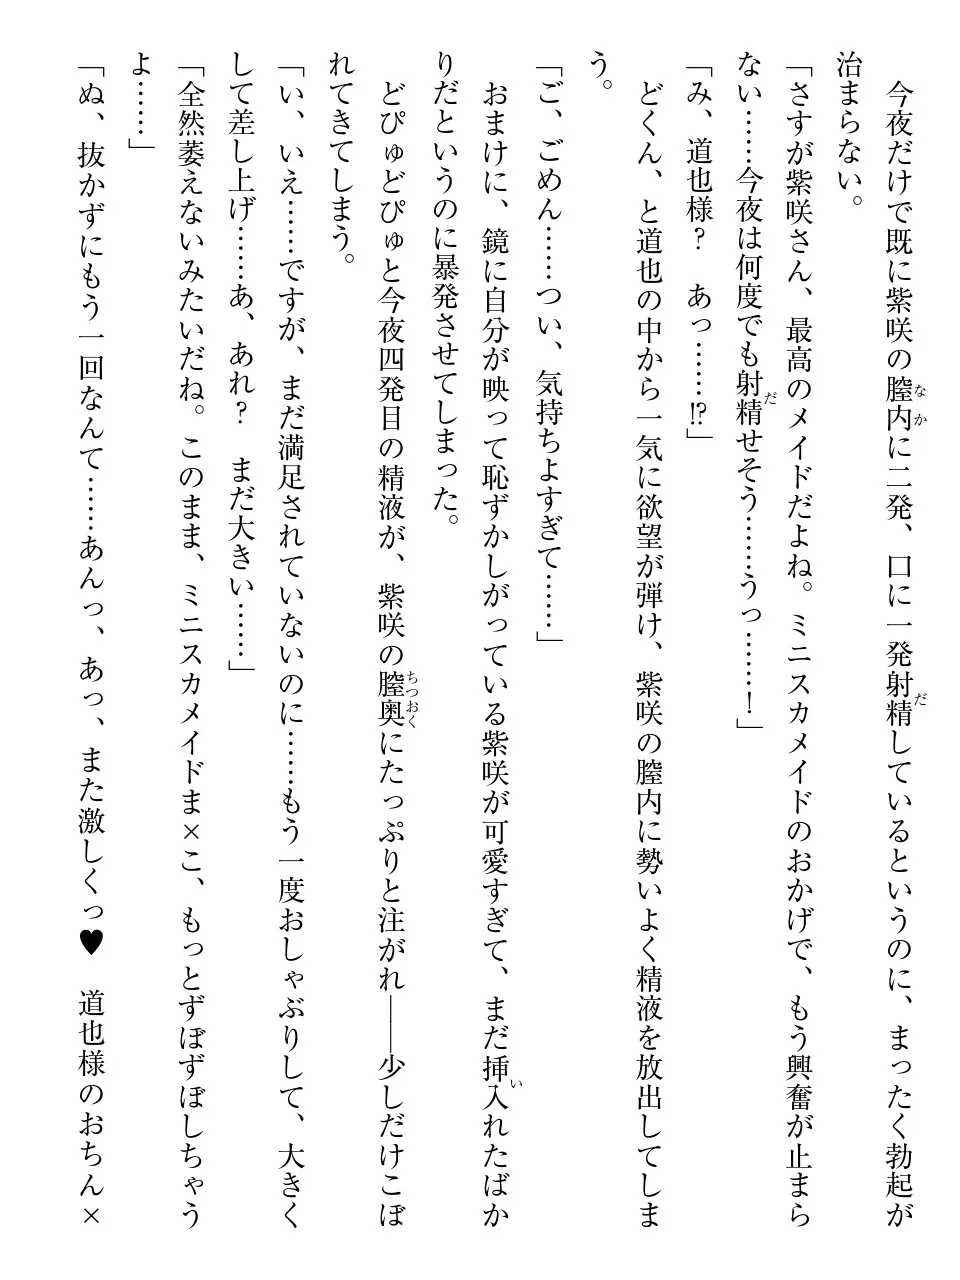 今夜だけで既に紫咲の膣内に二発、口に一発射精しているというのに、まったく勃起が
治まらない。
「さすが紫咲さん、最高のメイドだよね。ミニスカメイドのおかげで、もう興奮が止まら
ない……今夜は何度でも射精せそう……うっ……！」
「み、道也様？　あっ……⁉」
　どくん、と道也の中から一気に欲望が弾け、紫咲の膣内に勢いよく精液を放出してしま
う。
「ご、ごめん……つい、気持ちよすぎて……」
　おまけに、鏡に自分が映って恥ずかしがっている紫咲が可愛すぎて、まだ挿入れたばか
りだというのに暴発させてしまった。
　どぴゅどぴゅと今夜四発目の精液が、紫咲の膣奥にたっぷりと注がれ――少しだけこぼ
れてきてしまう。
「い、いえ……ですが、まだ満足されていないのに……もう一度おしゃぶりして、大きく
して差し上げ……あ、あれ？　まだ大きい……」
「全然萎えないみたいだね。このまま、ミニスカメイドま×こ、もっとずぼずぼしちゃう
よ……」
「ぬ、抜かずにもう一回なんて……あんっ、あっ、また激しくっ♥　道也様のおちん×